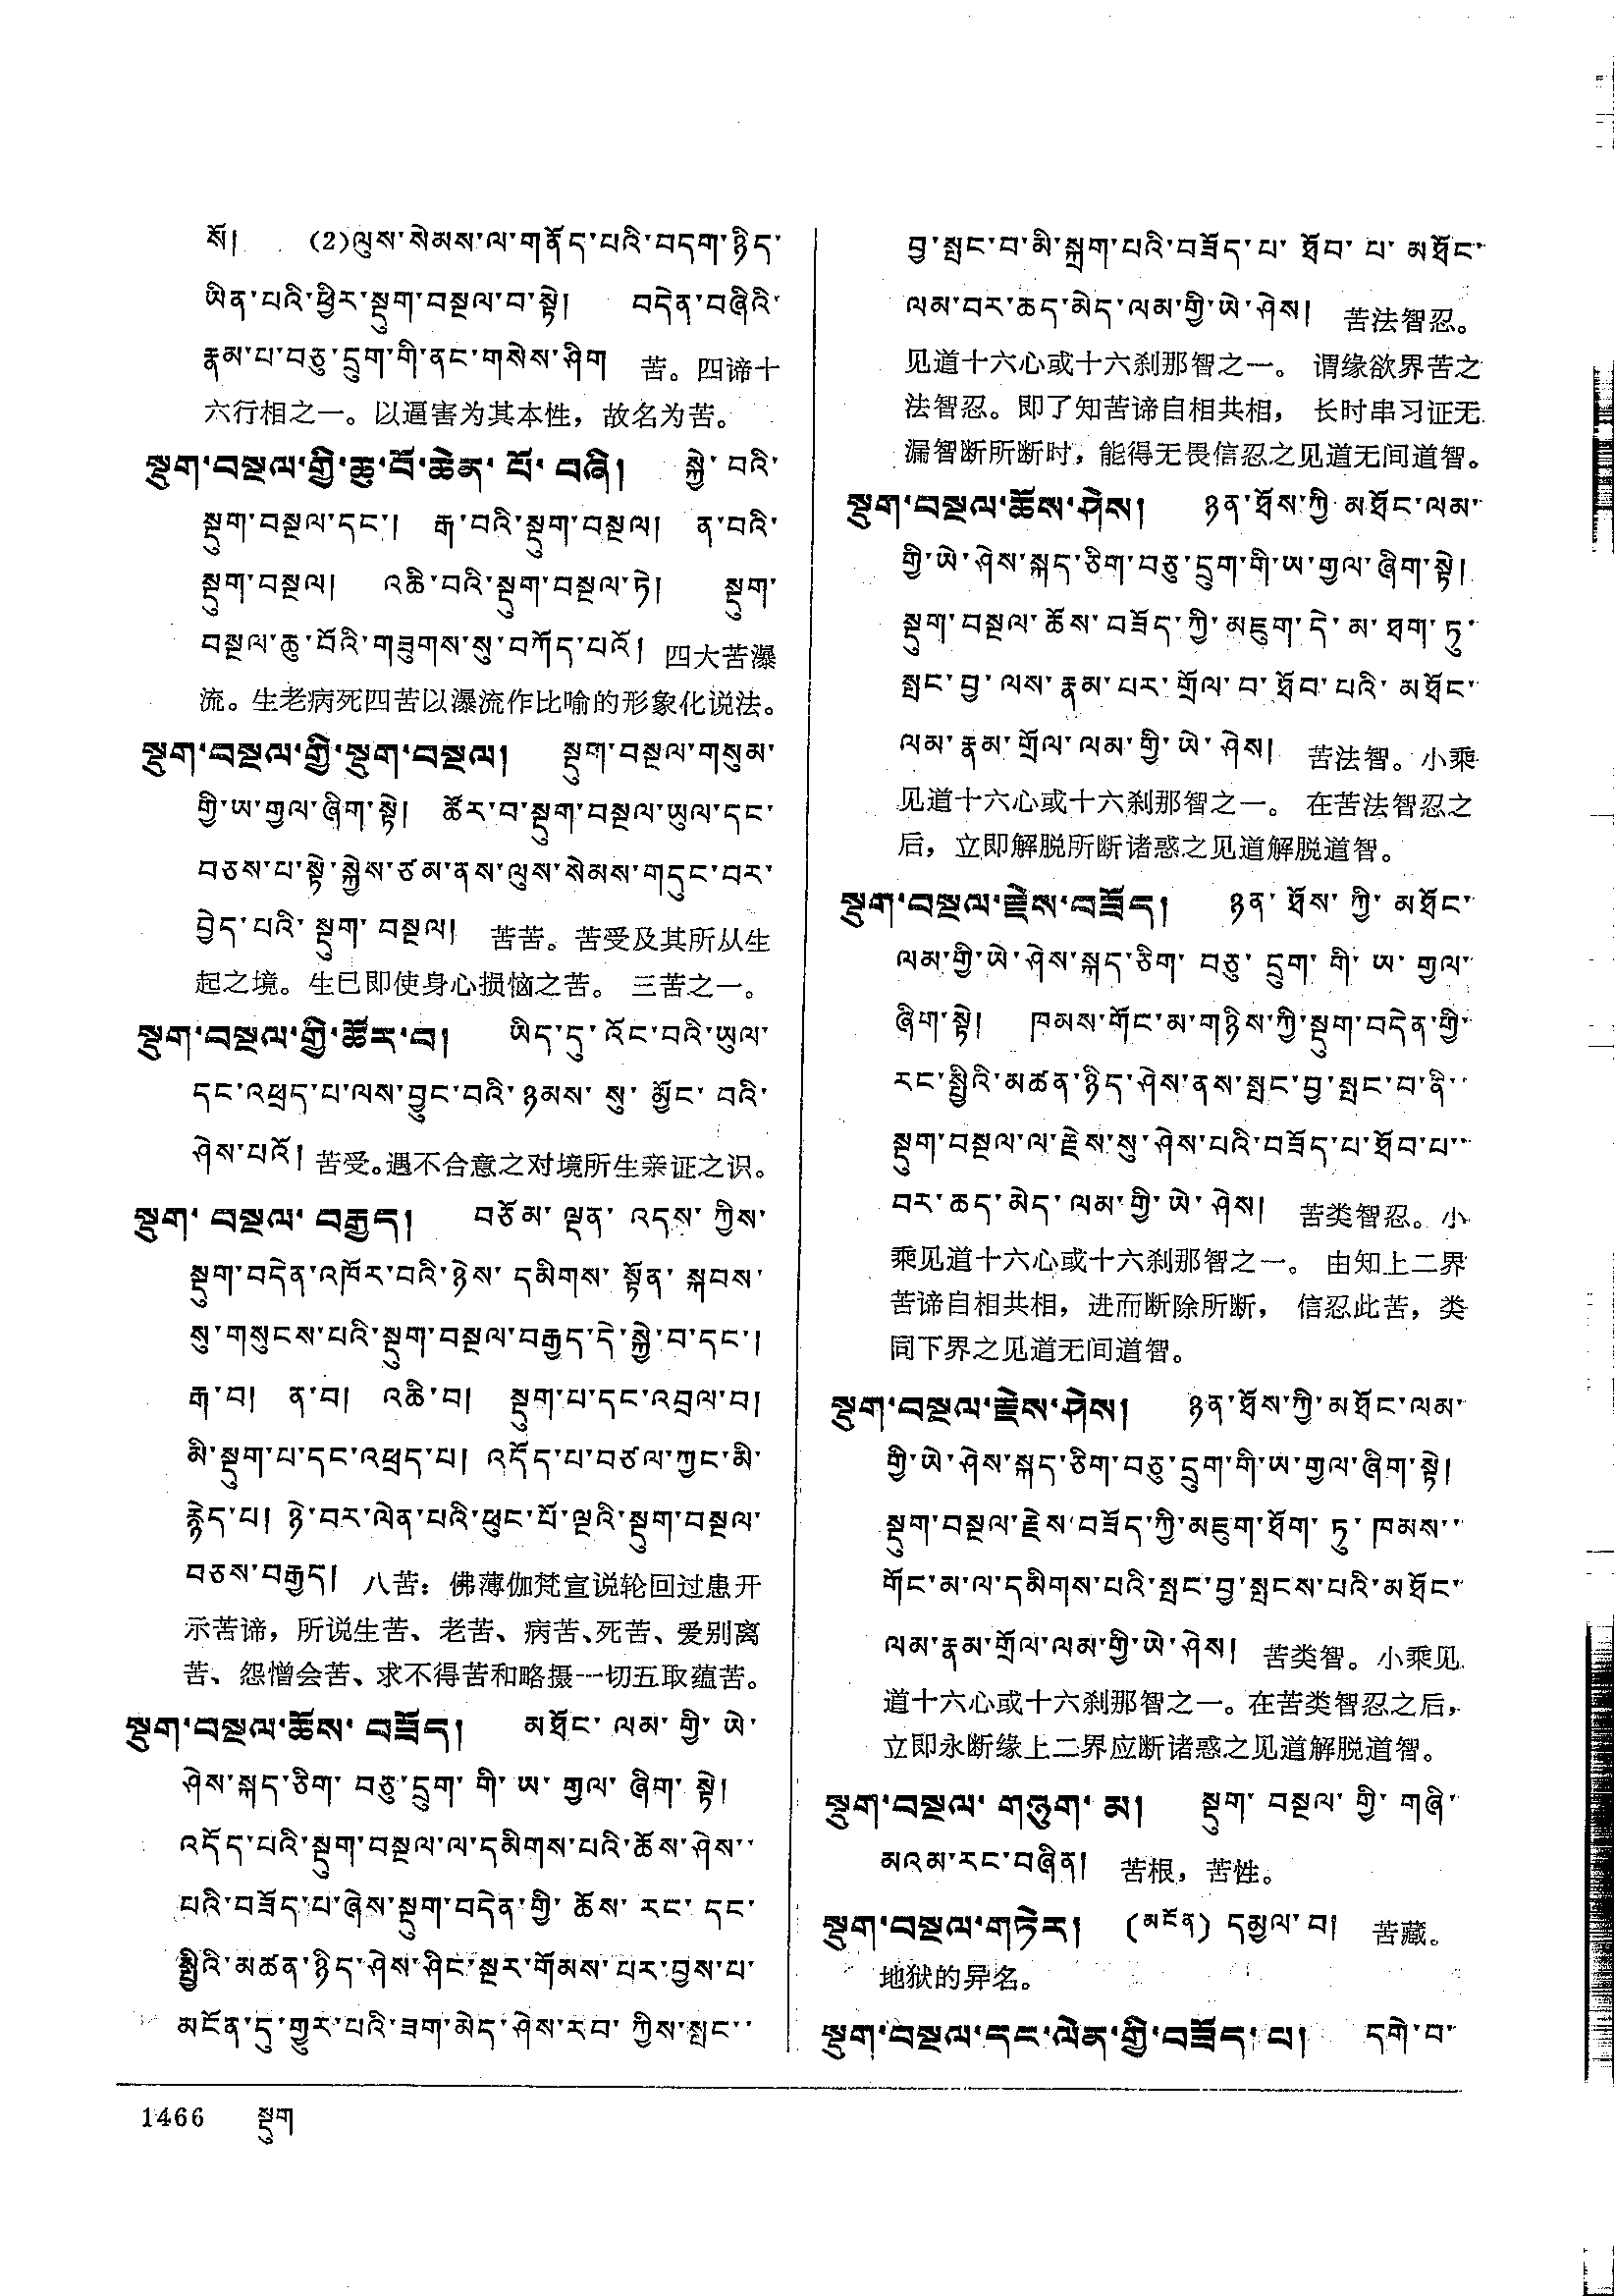 སོ།  (2)ལུས་སེམས་ལ་གནོད་པའི་བདག་ཉིད་
ཡིན་པའི་ཕྱིར་སྡུག་བསྔལ་བ་སྟེ།  བདེན་བཞིའི་
རྣམ་པ་བཅུ་དྲུག་གི་ནང་གསེས་ཤིག 苦。四谛十
六行相之一。以逼害为其本性，故名为苦。
སྡུག་བསྔལ་གྱི་ཆུ་བོ་ཆེན་པོ་བཞི།  སྐྱེ་བའི་
སྡུག་བསྔལ་དང་། རྒ་བའི་སྡུག་བསྔལ། ན་བའི་
སྡུག་བསྔལ།  འཆི་བའི་སྡུག་བསྔལ་ཏེ།  སྡུག་
བསྔལ་ཆུ་བོའི་གཟུགས་སུ་བཀོད་པའོ། 四大苦瀑
流。生老病死四苦以瀑流作比喻的形象化说法。
སྡུག་བསྔལ་གྱི་སྡུག་བསྔལ།  སྡུག་བསྔལ་གསུམ་
གྱི་ཡ་གྱལ་ཞིག་སྟེ། ཚོར་བ་སྡུག་བསྔལ་ཡུལ་དང་
བཅས་པ་སྟེ་སྐྱེས་ཙམ་ནས་ལུས་སེམས་གདུང་བར་
བྱེད་པའི་སྡུག་བསྔལ། 苦苦。苦受及其所从生
起之境。生已即使身心损恼之苦。 三苦之一。
སྡུག་བསྔལ་གྱི་ཚོར་བ།  ཡིད་དུ་འོང་བའི་ཡུལ་
དང་འཕྲད་པ་ལས་བྱུང་བའི་ཉམས་སུ་མྱོང་བའི་
ཤེས་པའོ། 苦受。遇不合意之对境所生亲证之识。
སྡུག་བསྔལ་བརྒྱད།  བཅོམ་ལྡན་འདས་ཀྱིས་
སྡུག་བདེན་འཁོར་བའི་ཉེས་དམིགས་སྟོན་སྐབས་
སུ་གསུངས་པའི་སྡུག་བསྔལ་བརྒྱད་དེ་སྐྱེ་བ་དང་།
རྒ་བ། ན་བ། འཆི་བ། སྡུག་པ་དང་འབྲལ་བ།
མི་སྡུག་པ་དང་འཕྲད་པ། འདོད་པ་བཙལ་ཀྱང་མི་
རྙེད་པ། ཉེ་བར་ལེན་པའི་ཕུང་པོ་ལྔའི་སྡུག་བསྔལ་
བཅས་བརྒྱད། 八苦：佛薄伽梵宣说轮回过患开
示苦谛，所说生苦、老苦、病苦、死苦、爱别离
苦、怨憎会苦、求不得苦和略摄一切五取蕴苦。
སྡུག་བསྔལ་ཆོས་བཟོད།  མཐོང་ལམ་གྱི་ཡེ་
ཤེས་སྐད་ཅིག་བཅུ་དྲུག་གི་ཡ་གྱལ་ཞིག་སྟེ།
འདོད་པའི་སྡུག་བསྔལ་ལ་དམིགས་པའི་ཆོས་ཤེས་
པའི་བཟོད་པ་ཞེས་སྡུག་བདེན་གྱི་ཆོས་རང་དང་
སྤྱིའི་མཚན་ཉིད་ཤེས་ཤིང་སྔར་གོམས་པར་བྱས་པ་
མངོན་དུ་གྱུར་པའི་ཟག་མེད་ཤེས་རབ་ཀྱིས་སྤང་
བྱ་སྤང་བ་མི་སྐྲག་པའི་བཟོད་པ་ཐོབ་པ་མཐོང་
ལམ་བར་ཆད་མེད་ལམ་གྱི་ཡེ་ཤེས། 苦法智忍。
见道十六心或十六刹那智之一。 谓缘欲界苦之
法智忍。即了知苦谛自相共相， 长时串习证无
漏智断所断时，能得无畏信忍之见道无间道智。
སྡུག་བསྔལ་ཆོས་ཤེས།  ཉན་ཐོས་ཀྱི་མཐོང་ལམ་
གྱི་ཡེ་ཤེས་སྐད་ཅིག་བཅུ་དྲུག་གི་ཡ་གྱལ་ཞིག་སྟེ།
སྡུག་བསྔལ་ཆོས་བཟོད་ཀྱི་མཇུག་དེ་མ་ཐག་ཏུ་
སྤང་བྱ་ལས་རྣམ་པར་གྲོལ་བ་ཐོབ་པའི་མཐོང་
ལམ་རྣམ་གྲོལ་ལམ་གྱི་ཡེ་ཤེས། 苦法智。小乘
见道十六心或十六刹那智之一。 在苦法智忍之
后，立即解脱所断诸惑之见道解脱道智。
སྡུག་བསྔལ་རྗེས་བཟོད།  ཉན་ཐོས་ཀྱི་མཐོང་
ལམ་གྱི་ཡེ་ཤེས་སྐད་ཅིག་བཅུ་དྲུག་གི་ཡ་གྱལ་
ཞིག་སྟེ།  ཁམས་གོང་མ་གཉིས་ཀྱི་སྡུག་བདེན་གྱི་
རང་སྤྱིའི་མཚན་ཉིད་ཤེས་ནས་སྤང་བྱ་སྤང་བ་ནི་
སྡུག་བསྔལ་ལ་རྗེས་སུ་ཤེས་པའི་བཟོད་པ་ཐོབ་པ་
བར་ཆད་མེད་ལམ་གྱི་ཡེ་ཤེས། 苦类智忍。小
乘见道十六心或十六刹那智之一。 由知上二界
苦谛自相共相，进而断除所断， 信忍此苦，类
同下界之见道无间道智。
སྡུག་བསྔལ་རྗེས་ཤེས།  ཉན་ཐོས་ཀྱི་མཐོང་ལམ་
གྱི་ཡེ་ཤེས་སྐད་ཅིག་བཅུ་དྲུག་གི་ཡ་གྱལ་ཞིག་སྟེ།
སྡུག་བསྔལ་རྗེས་བཟོད་ཀྱི་མཇུག་ཐོག་ཏུ་ཁམས་
གོང་མ་ལ་དམིགས་པའི་སྤང་བྱ་སྤངས་པའི་མཐོང་
ལམ་རྣམ་གྲོལ་ལམ་གྱི་ཡེ་ཤེས། 苦类智。小乘见
道十六心或十六刹那智之一。在苦类智忍之后，
立即永断缘上二界应断诸惑之见道解脱道智。
སྡུག་བསྔལ་གཉུག་མ།  སྡུག་བསྔལ་གྱི་གཞི་
མའམ་རང་བཞིན། 苦根，苦性。
སྡུག་བསྔལ་གཏེར།  (མངོན) དམྱལ་བ། 苦藏。
地狱的异名。
སྡུག་བསྔལ་དང་ལེན་གྱི་བཟོད་པ།  དགེ་བ་
1466  སྡུག